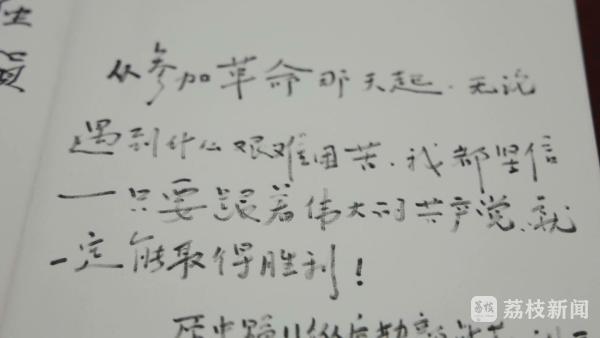 从参加革命那天起，无论
遇到什么艰难困苦，我都坚信
一只要跟着伟大的共产党，就
一定能取得胜利！
荔枝新闻